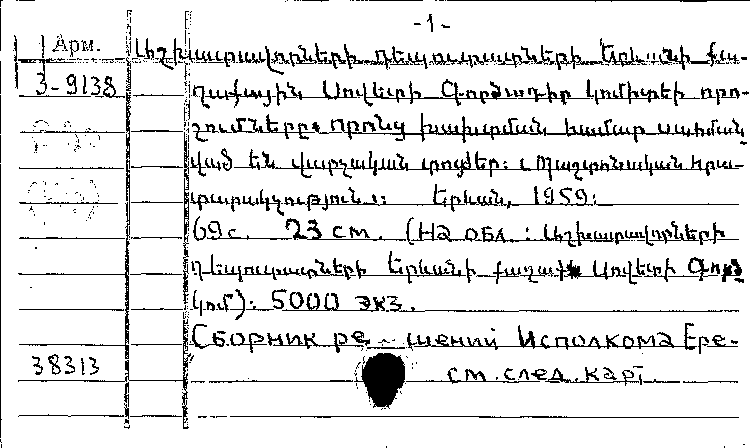 -1-
Арм. Աշխատավորների դեպուտատների Երևանի քա-
3-9138 ղաքային Սովետի Գործադիր կոմիտեի որո-
շումները, որոնց խախտման համար սահման-
ված են վարչական տույժեր: (Պաշտոնական հրա-
տարակչություն): Երևան, 1959:
69с. 23 см. (На обл: Աշխատավորների
դեպուտատների Երևանի քաղաքի Սովետի Գործ
կոմ): 5000 экз.
Сборник ре- шений Исполкома Ере-
38313 см. след. карт